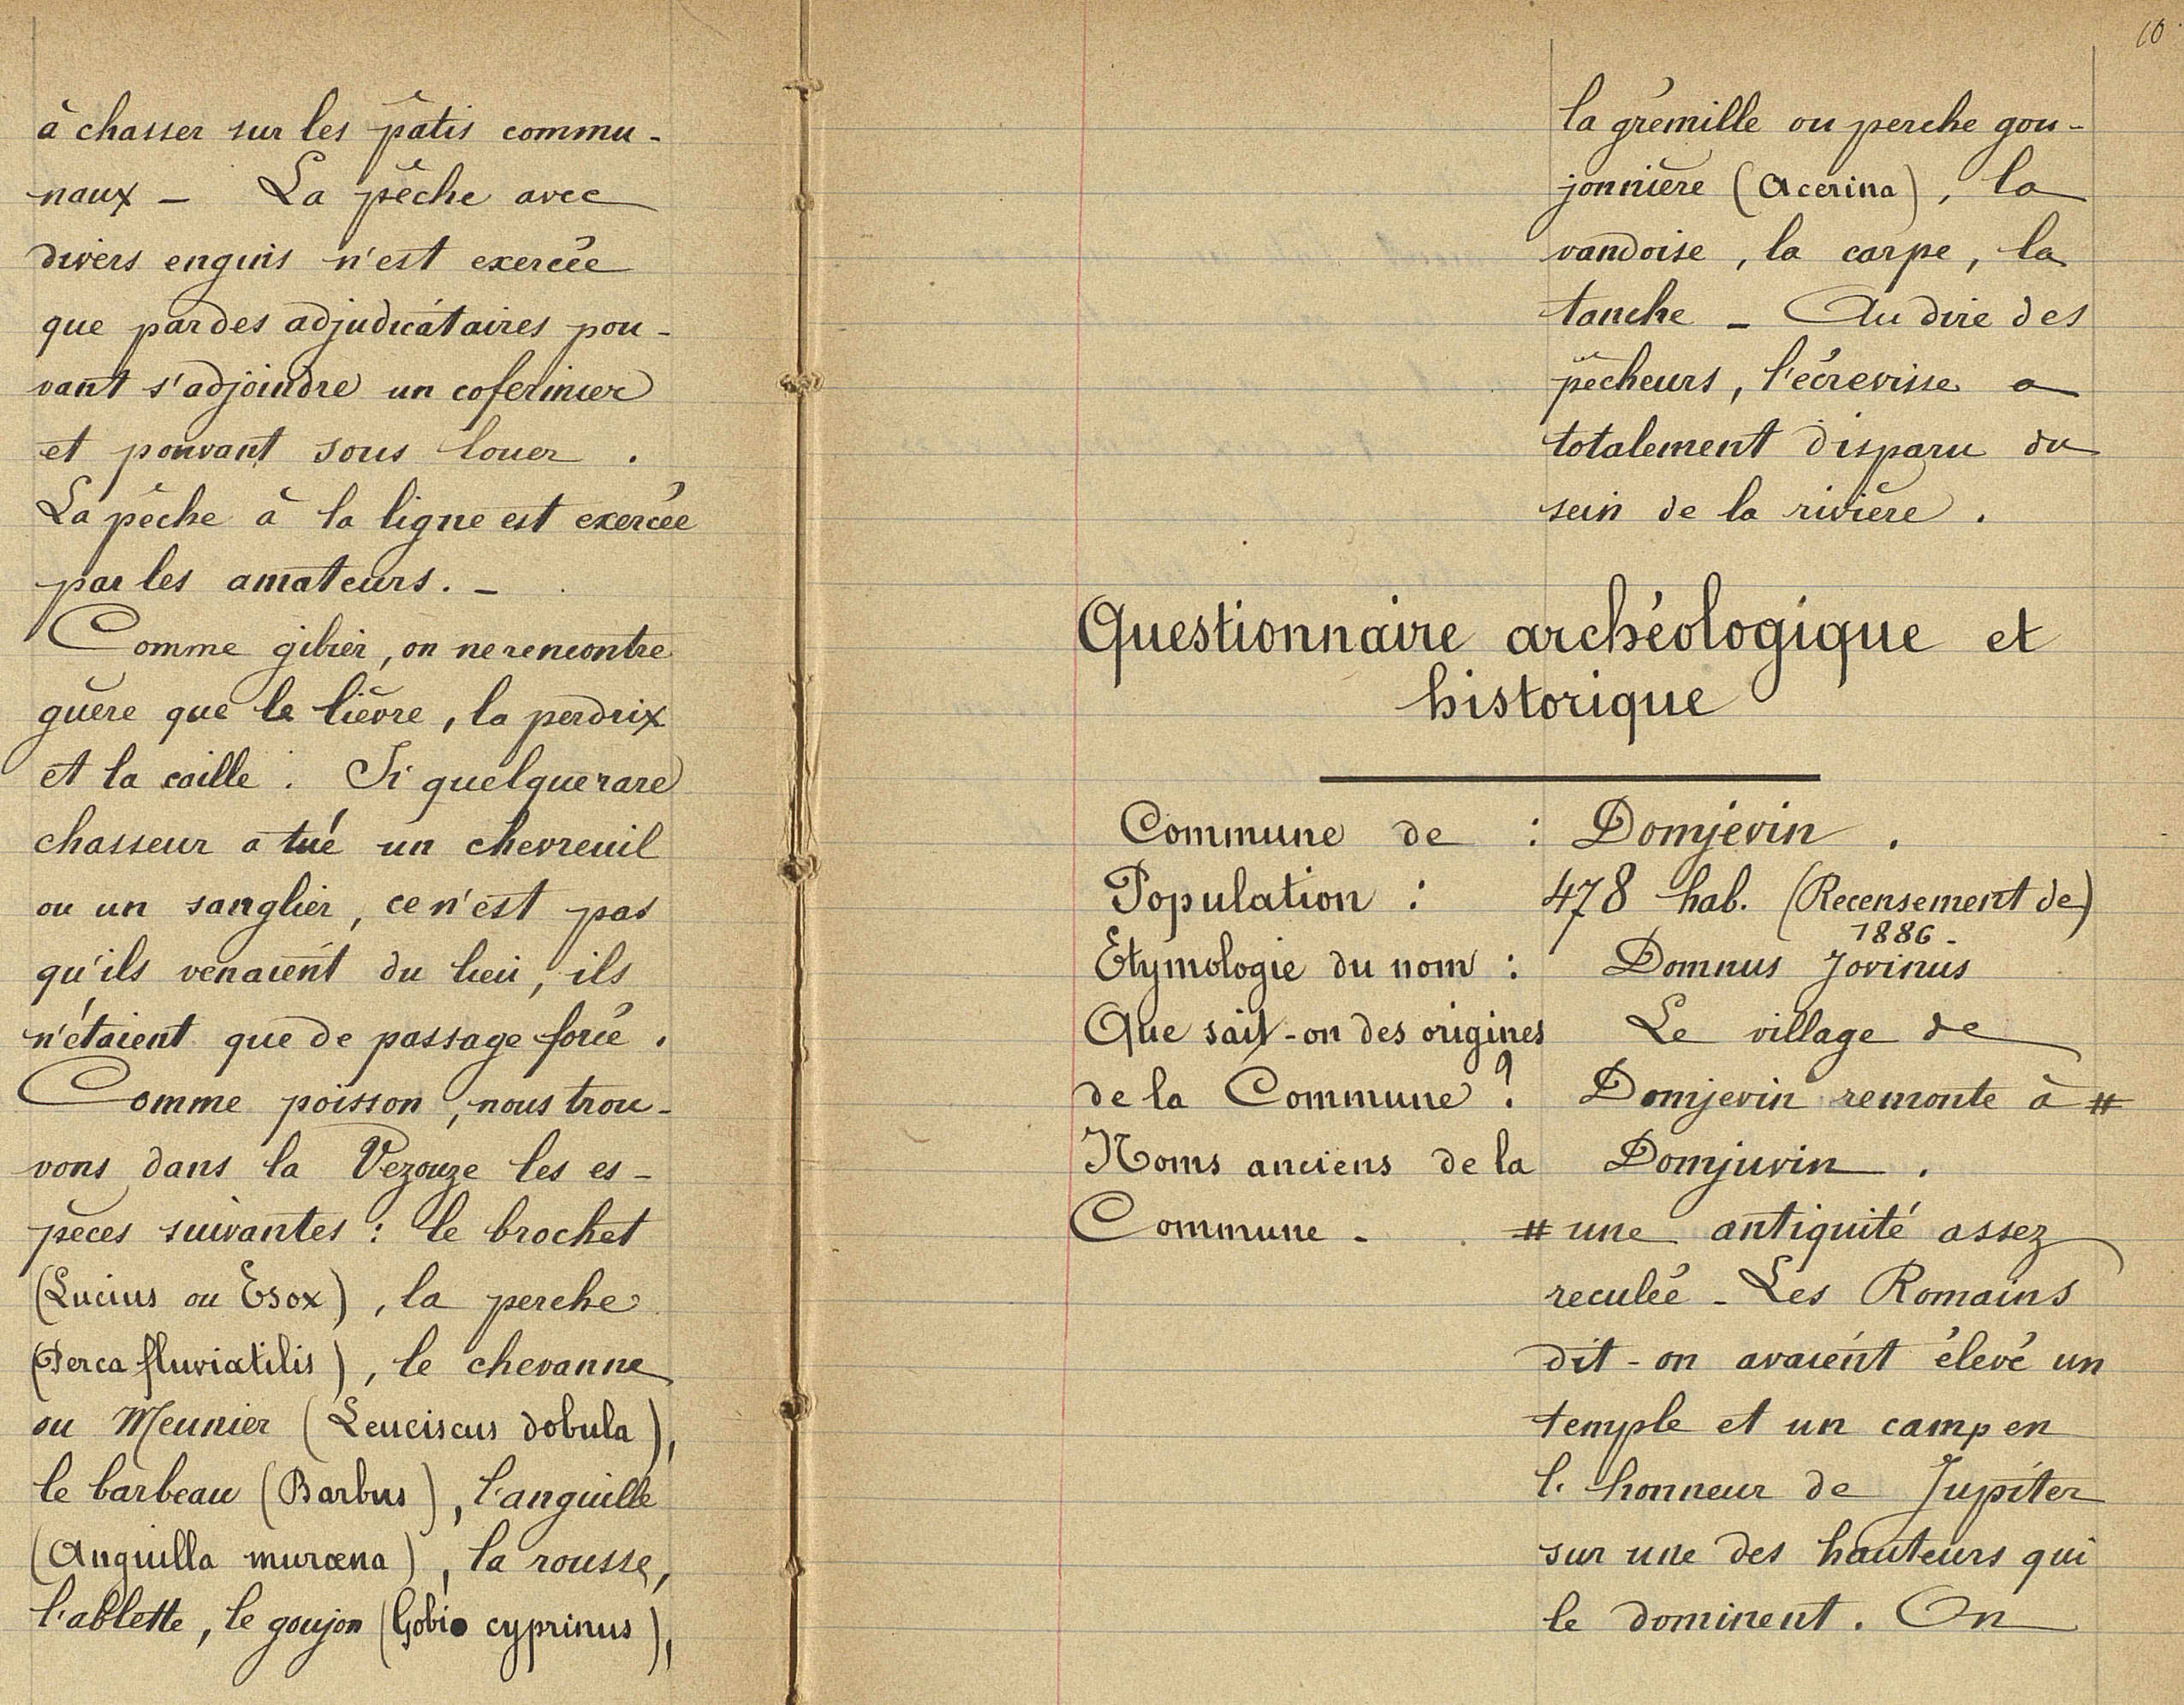 à chasser sur les pâtis commu-
naux - La pêche avec
divers engins n'est exercée
que par des adjudicataires pou-
vant s'adjoindre un cofermier
et pouvant sous louer .
La pêche à la ligne est exercée
par les amateurs. -
Comme gibier, on ne rencontre
guère que le lièvre, la perdrix
et la caille . Si quelque rare
chasseur a tué un chevreuil
ou un sanglier, ce n'est pas
qu'ils venaient du lieu, ils
n'étaient que de passage forcé .
Comme poisson, nous trou-
vons dans la Vezouze les es-
pèces suivantes : le brochet
(Lucius ou Esox), la perche
(Perca fluviatilis), le chevanne
ou Meunier (Leuciscus dobula),
le barbeau (Barbus), l'anguille
(Anguilla muræna), la rousse,
l'ablette, le goujon (Gobio cyprinus),
10
la grémille ou perche gou-
jonnière (Acerina), la
vandoise, la carpe, la
tanche - Au dire des
pêcheurs, l'écrevisse a
totalement disparu du
sein de la rivière .
Questionnaire archéologique et
historique
Commune de : Domjevin .
Population : 478 hab. (Recensement de)
1886 -
Etymologie du nom : Domnus Jovinus
Que sait-on des origines Le village de
de la Commune ? Domjevin remonte à #
Noms anciens de la Domjuvin .
Commune - # une antiquité assez
reculée - Les Romains
dit-on avaient élevé un
temple et un camp en
l'honneur de Jupiter
sur une des hauteurs qui
le dominent . On